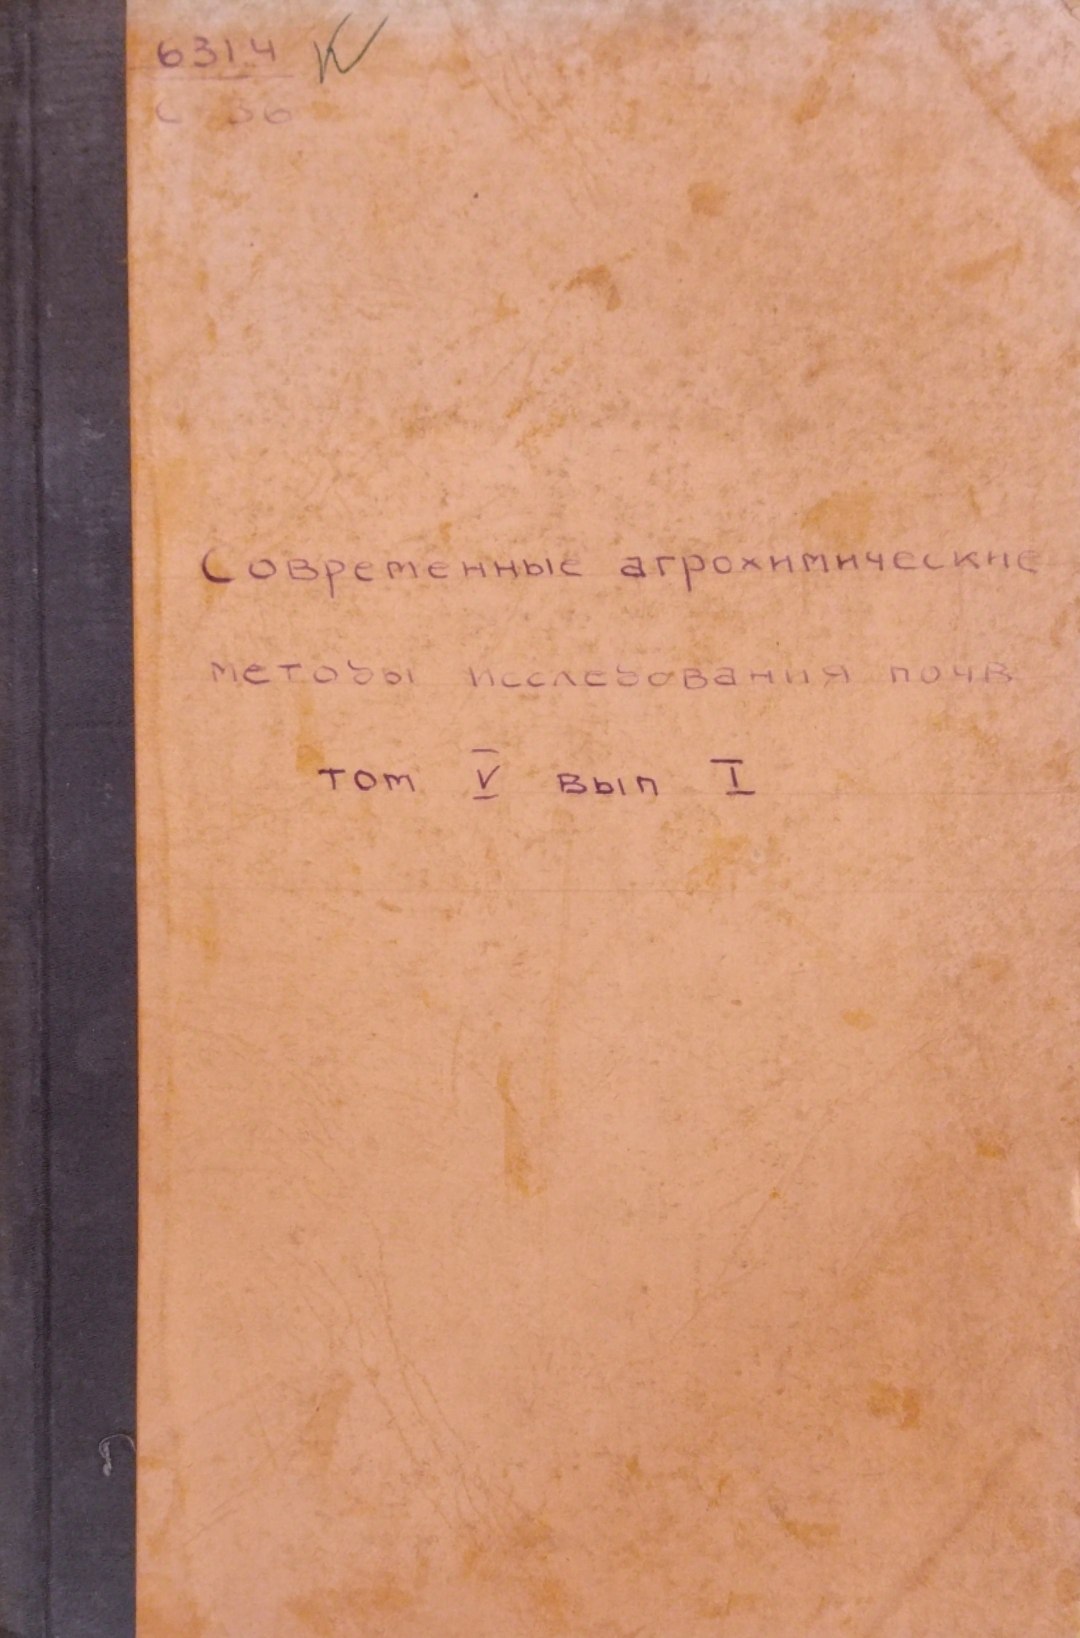 631.4 К
С 56
Современные агрохимические
методы исследования почв
том V вып I